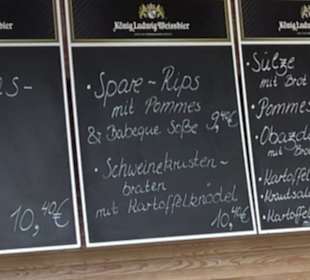 König Ludwig Weissbier
S-
10,40€
König Ludwig Weissbier
• Spare-Rips
mit Pommes
& Babeque Soße 9,40€
• Schweinekrusten-
braten
mit Kartoffelknödel
10,40€
König Ludwig Weissbier
Sülze
mit Brot
• Pommes
• Obazda
mit Brot
• Kartoffel
• Krautsala
• Kartoffel